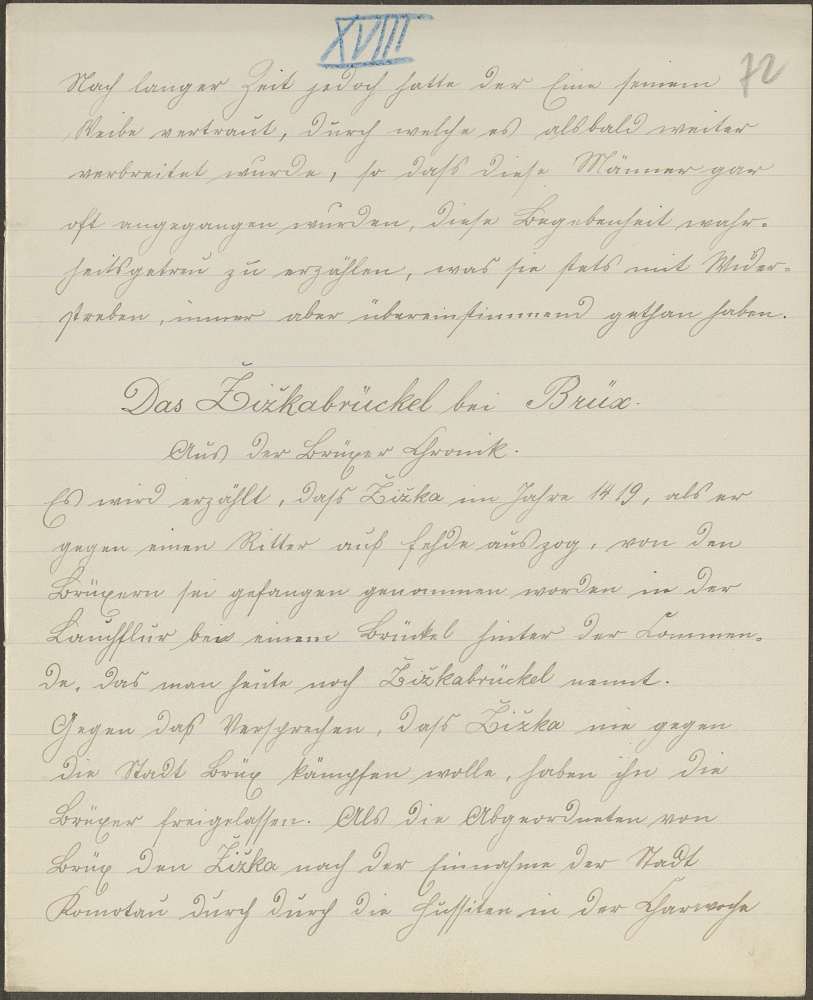 XVIII
72
Nach langer Zeit jedoch hatte der Eine seinem
Weibe vertraut, durch welche es alsbald weiter
verbreitet wurde, so daſs diese Männer gar
oft angegangen wurden, diese Begebenheit wahr-
heitsgetreu zu erzählen, was sie stets mit Wider-
streben, immer aber übereinstimmend gethan haben.
Das Žižkabrückel bei Brüx.
Aus der Brüxer Chronik.
Es wird erzählt, daſs Žižka im Jahre 1419, als er
gegen einen Ritter auf Fehde auszog, von den
Brüxern sei gefangen genommen worden in der
Lauchflur bei einem Brückel hinter der Commen-
de, das man heute noch Žižkabrückel nennt.
Gegen daß Versprechen, daſs Žižka nie gegen
die Stadt Brüx kämpfen wolle, haben ihn die
Brüxer freigelassen. Als die Abgeordneten von
Brüx den Žižka nach der Einnahme der Stadt
Komotau durch durch die Hussiten in der Charwoche